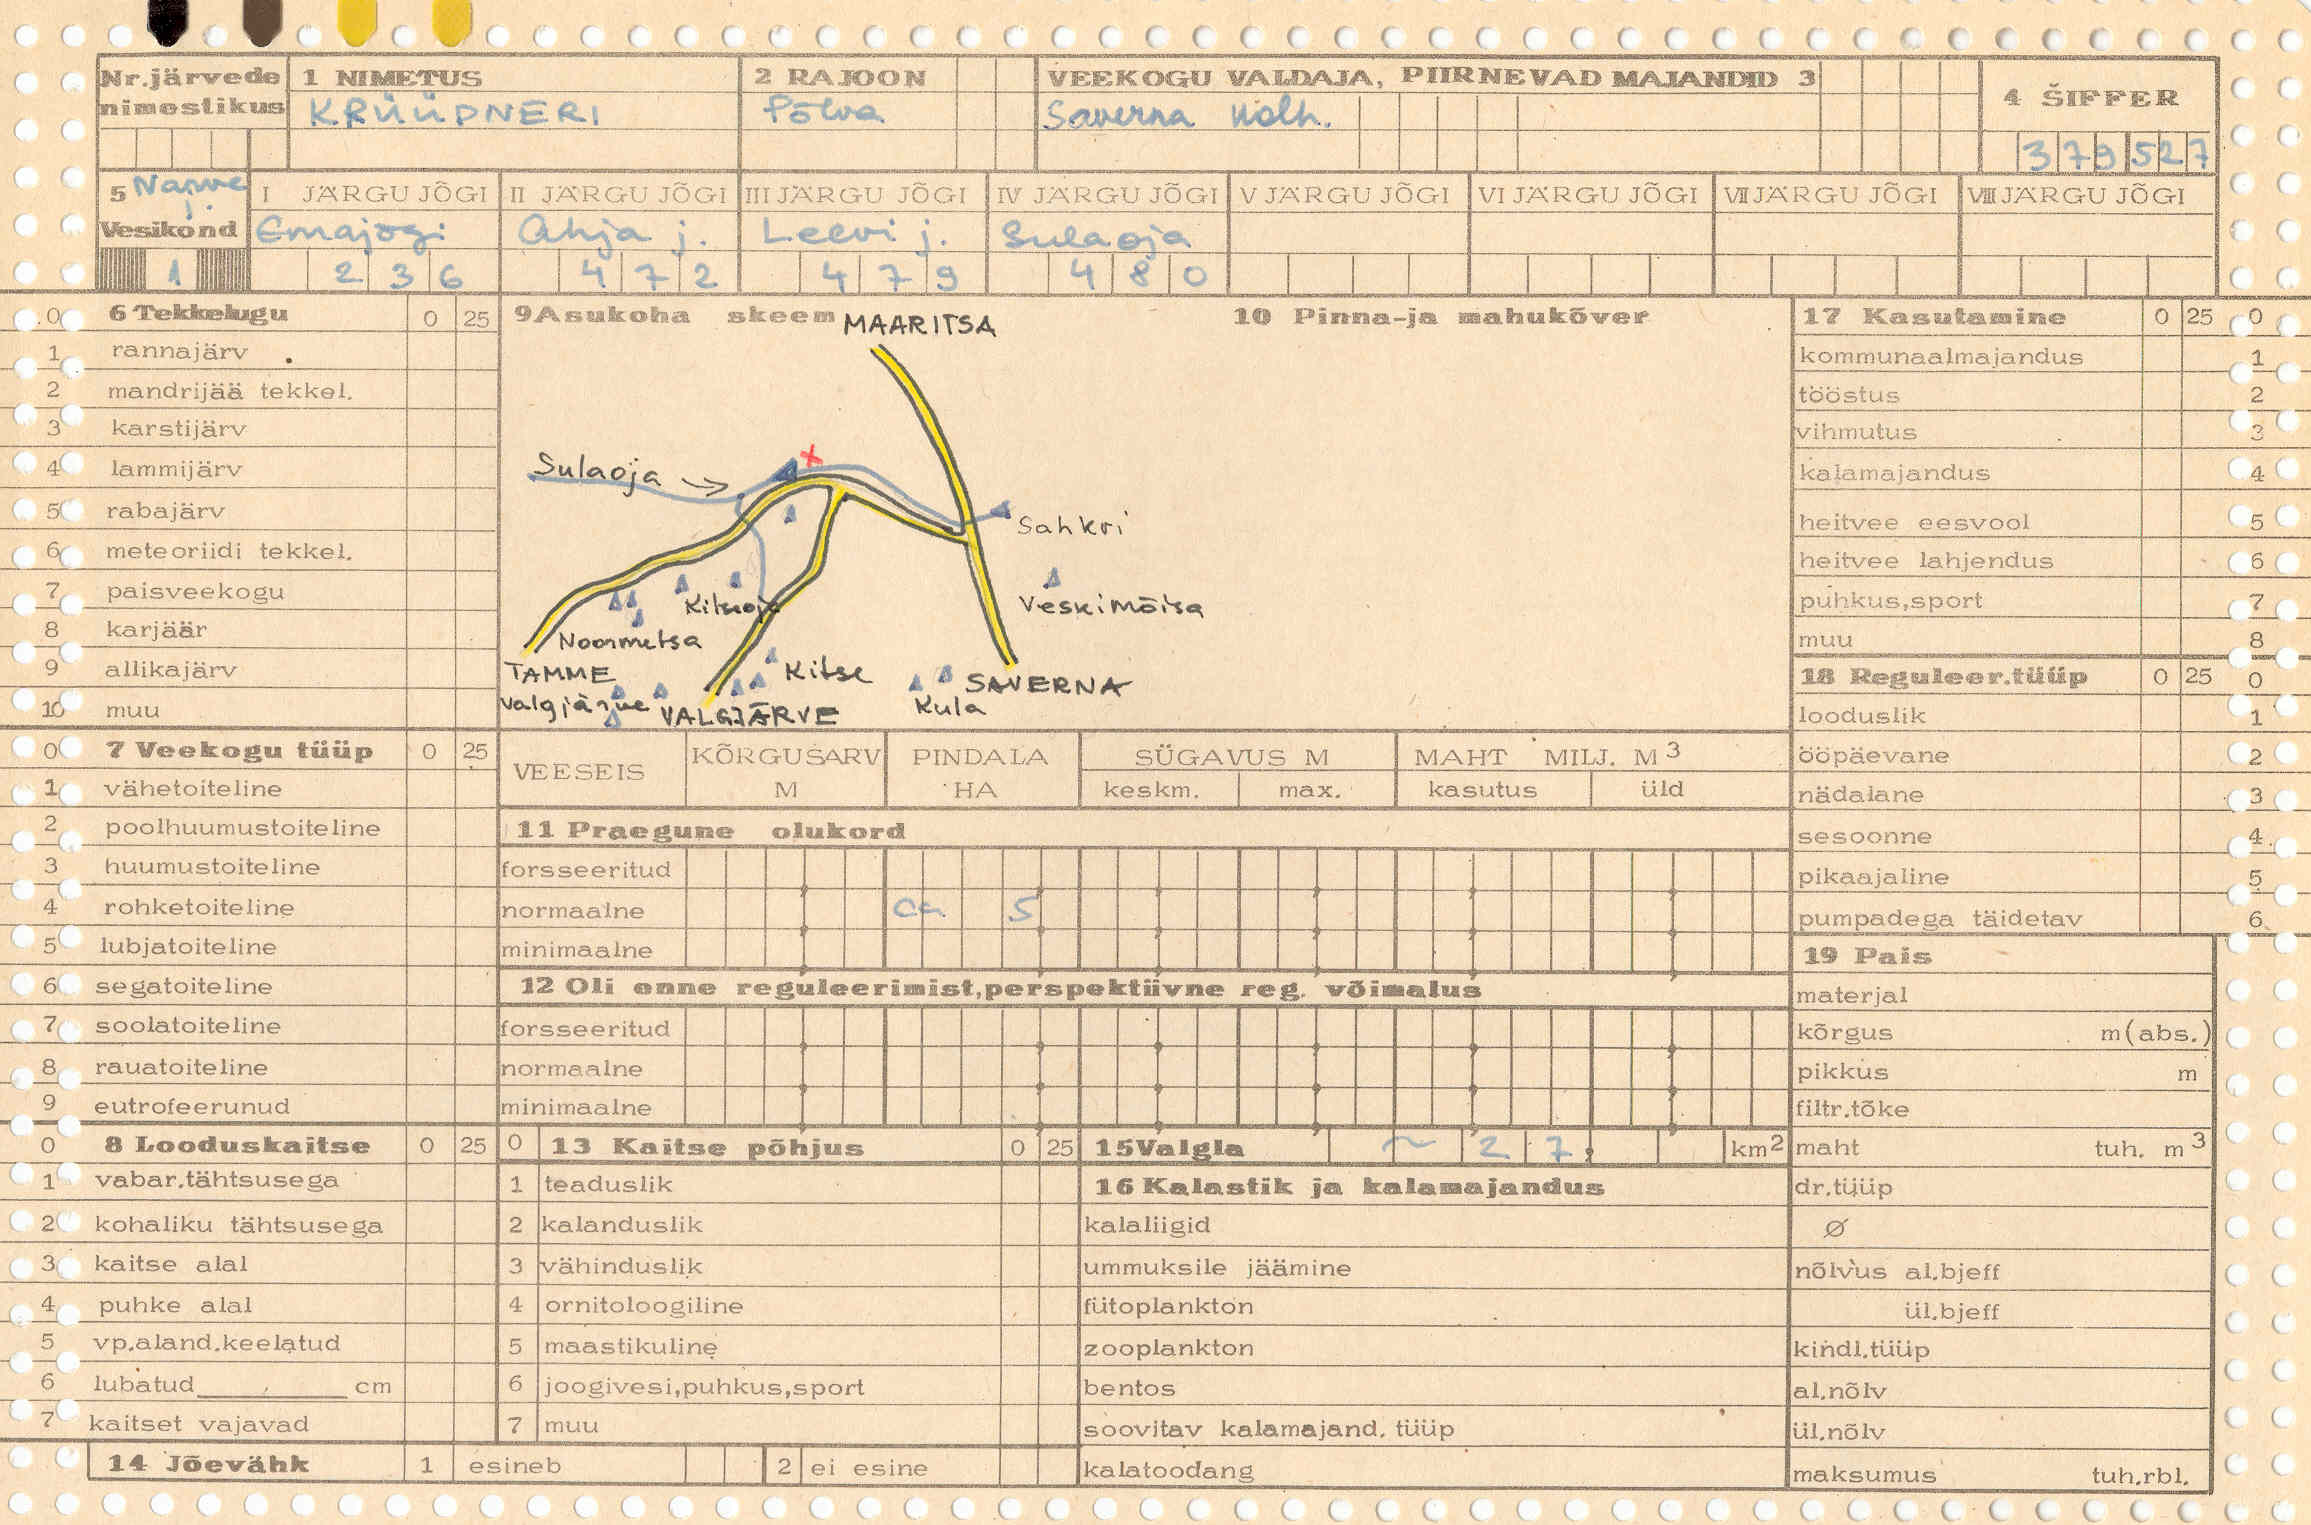 Nr.järvede nimestikus
1 NIMETUS
KRÜÜDNERI
2 RAJOON
Põlva
VEEKOGU VALDAJA, PIIRNEVAD MAJANDID 3
Saverna kolh.
4 ŠIFFER
379527
5 Narve j.
Vesikond
1
I JÄRGU JÕGI
Emajõgi
236
II JÄRGU JÕGI
Ahja j.
472
III JÄRGU JÕGI
Leevi j.
479
IV JÄRGU JÕGI
Sulaoja
480
V JÄRGU JÕGI
VI JÄRGU JÕGI
VII JÄRGU JÕGI
VIII JÄRGU JÕGI
0 6 Tekkelugu 0 25
1 rannajärv
2 mandrijää tekkel.
3 karstijärv
4 lammijärv
5 rabajärv
6 meteoriidi tekkel.
7 paisveekogu
8 karjäär
9 allikajärv
10 muu
0 7 Veekogu tüüp 0 25
1 vähetoiteline
2 poolhuumustoiteline
3 huumustoiteline
4 rohketoiteline
5 lubjatoiteline
6 segatoiteline
7 soolatoiteline
8 rauatoiteline
9 eutrofeerunud
0 8 Looduskaitse 0 25
1 vabar.tähtsusega
2 kohaliku tähtsusega
3 kaitse alal
4 puhke alal
5 vp.aland.keelatud
6 lubatud cm
7 kaitset vajavad
14 Jõevähk 1 esineb 2 ei esine
9 Asukoha skeem
MAARITSA
Sulaoja →
Sahkri
Kitseoja
Veskimõisa
Noormetsa
TAMME
Kitse
SAVERNA
Valgjärve
VALGJÄRVE
Kula
10 Pinna-ja mahukõver
VEESEIS
KÕRGUSARV M
PINDALA HA
SÜGAVUS M
keskm. max.
MAHT MILJ. M3
kasutus üld
11 Praegune olukord
forsseeritud
normaalne ca 5
minimaalne
12 Oli enne reguleerimist,perspektiivne reg. võimalus
forsseeritud
normaalne
minimaalne
0 13 Kaitse põhjus 0 25
1 teaduslik
2 kalanduslik
3 vähinduslik
4 ornitoloogiline
5 maastikuline
6 joogivesi,puhkus,sport
7 muu
15 Valgla ~ 27, km2
16 Kalastik ja kalamajandus
kalaliigid
ummuksile jäämine
fütoplankton
zooplankton
bentos
soovitav kalamajand. tüüp
kalatoodang
17 Kasutamine 0 25 0
kommunaalmajandus 1
tööstus 2
vihmutus 3
kalamajandus 4
heitvee eesvool 5
heitvee lahjendus 6
puhkus,sport 7
muu 8
18 Reguleer.tüüp 0 25 0
looduslik 1
ööpäevane 2
nädalane 3
sesoonne 4
pikaajaline 5
pumpadega täidetav 6
19 Pais
materjal
kõrgus m(abs.)
pikkus m
filtr.tõke
maht tuh. m3
dr.tüüp
Ø
nõlvus al.bjeff
ül.bjeff
kindl.tüüp
al.nõlv
ül.nõlv
maksumus tuh.rbl.